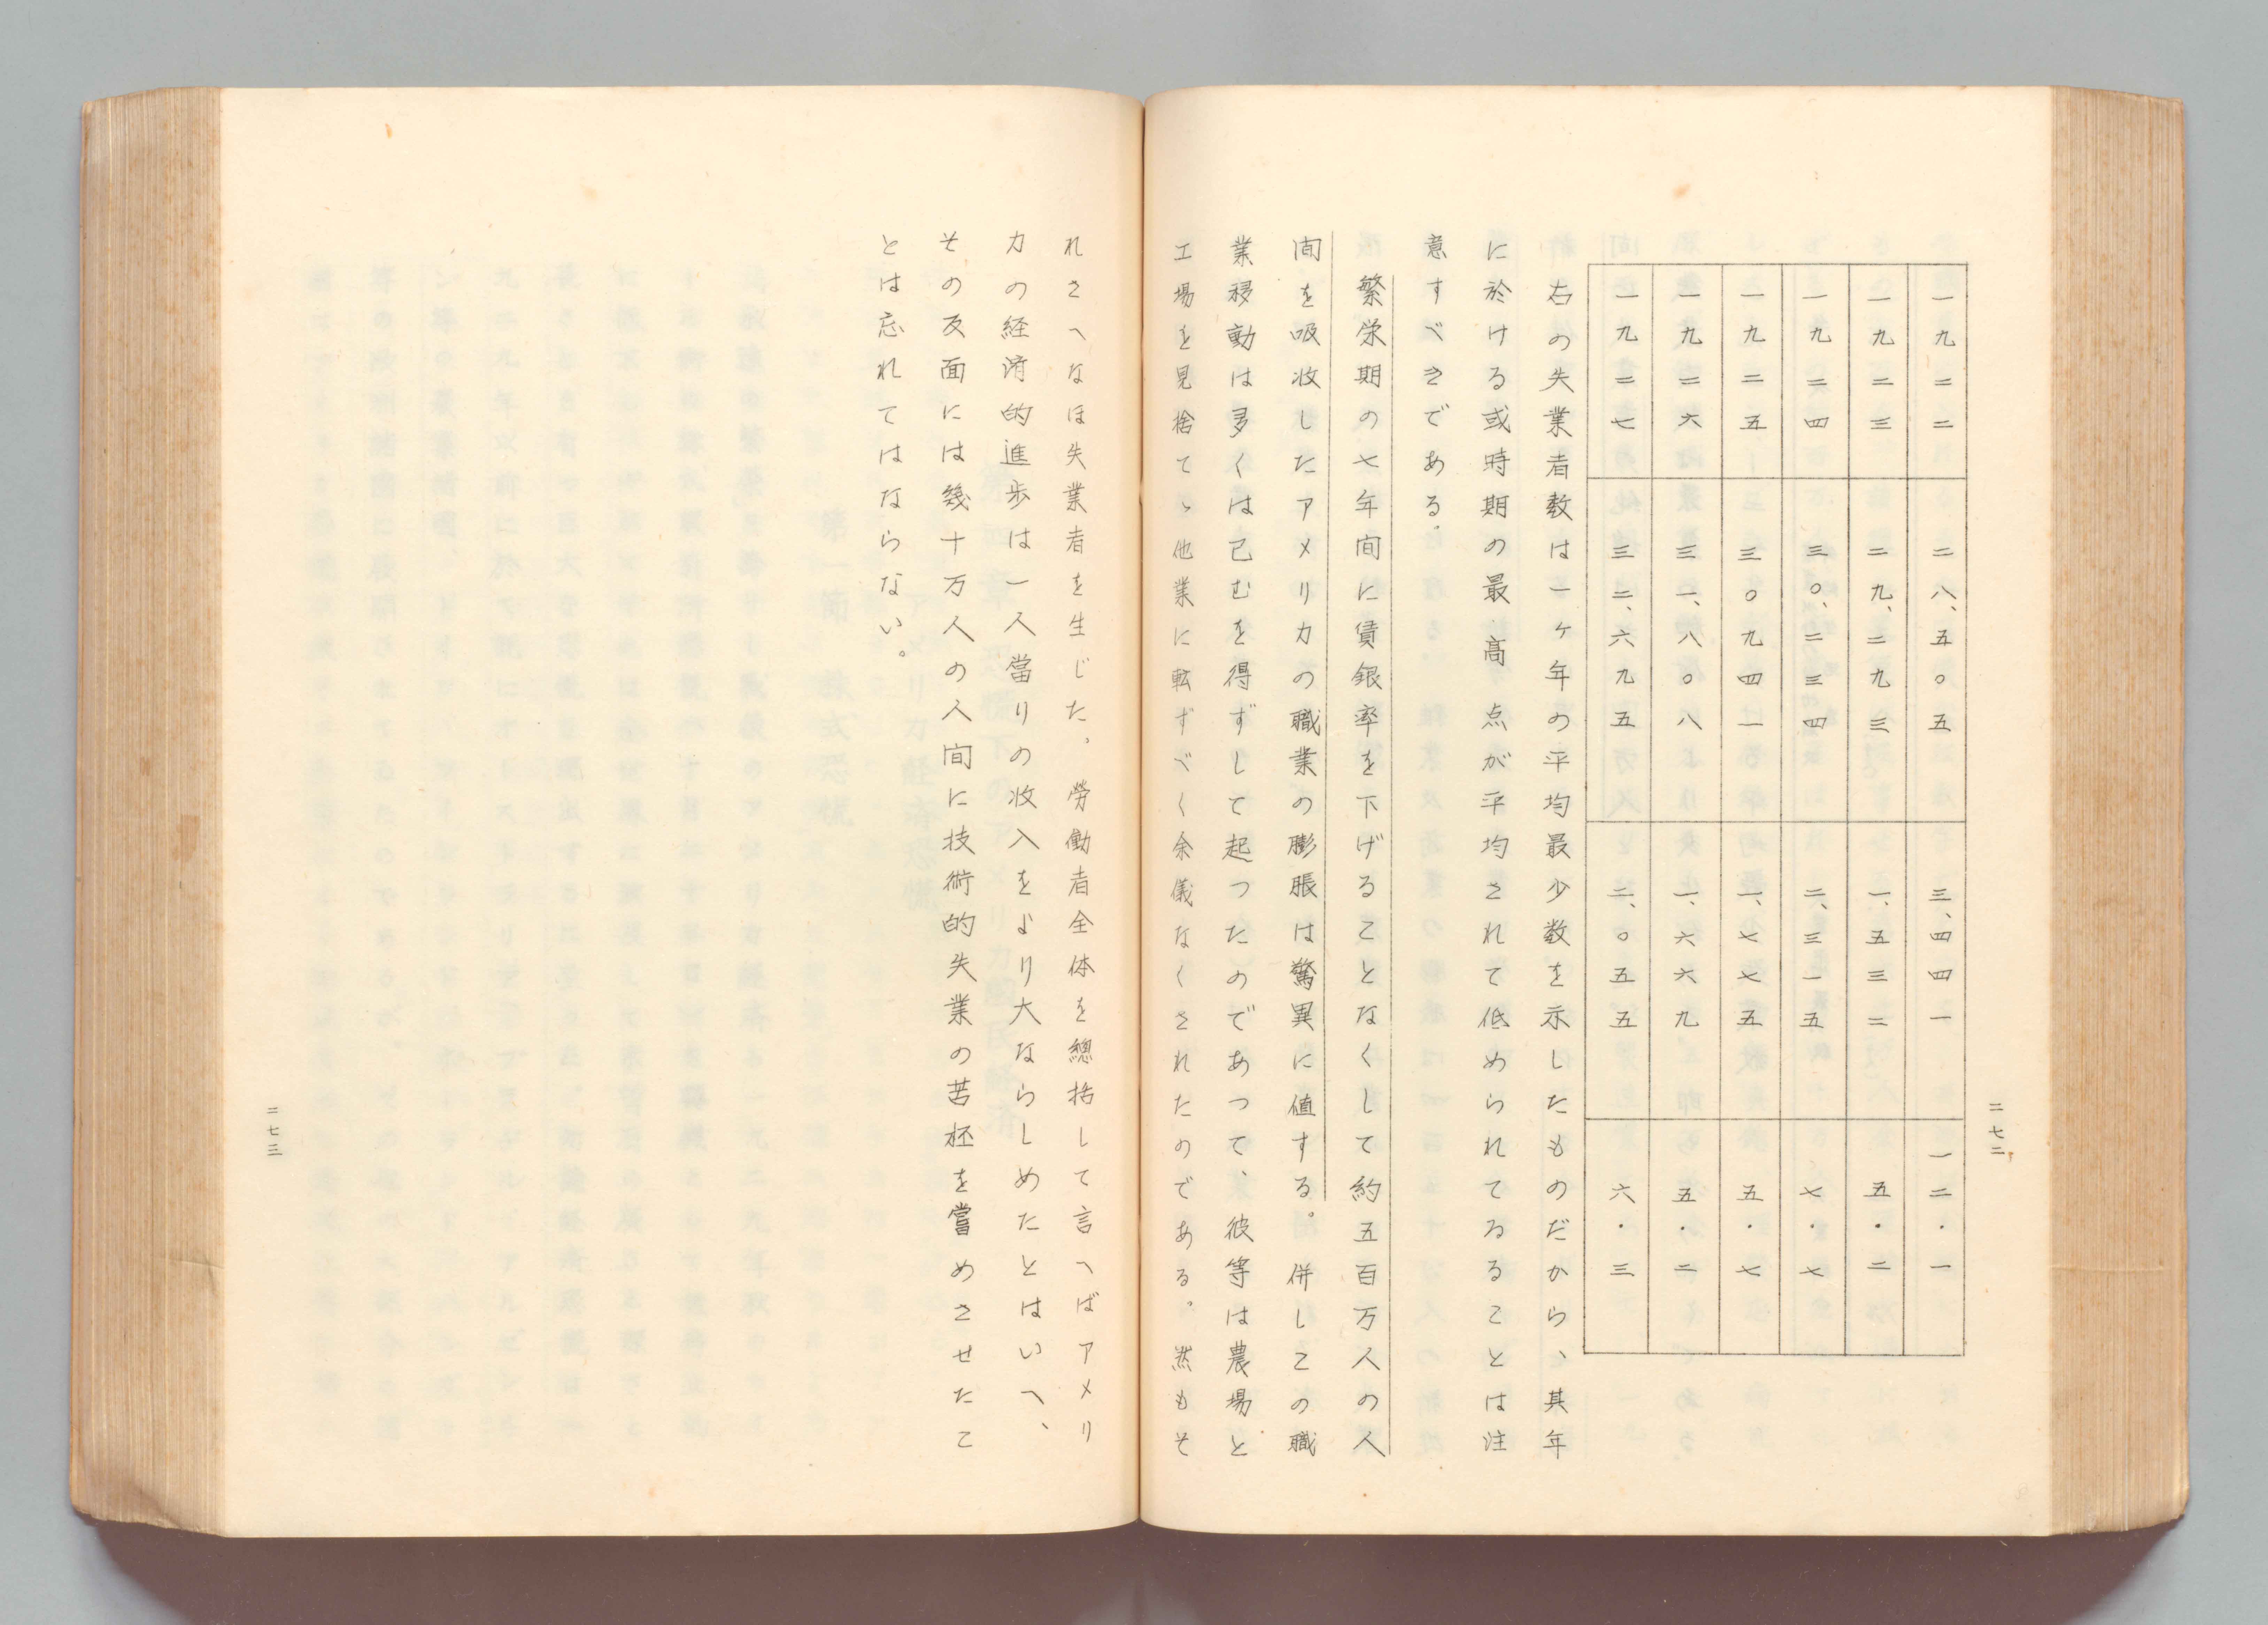 二七二
一九二二 二八、五〇五 三、四四一 一二・一
一九二三 二九、二九三 一、五三二 五・二
一九二四 三〇、二三四 二、三一五 七・七
一九二五 三〇九四一 一、七七五 五・七
一九二六 三一、八〇八 一、六六九 五・二
一九二七 三二、六九五 二、〇五五 六・三
右の失業者数は一ヶ年の平均最少数を示したものだから、其年
に於ける或時期の最高点が平均されて低められてゐることは注
意すべきである。
繁栄期の七年間に賃銀率を下げることなくして約五百万人の人
間を吸收したアメリカの職業の膨脹は驚異に値する。併しこの職
業移動は多くは已むを得ずして起つたのであつて、彼等は農場と
工場を見捨てゝ他業に転ずべく余儀なくされたのである。然もそ
れさへなほ失業者を生じた。勞働者全体を總括して言へばアメリ
カの経済的進歩は一人當りの收入をより大ならしめたとはいへ、
その反面には幾十万人の人間に技術的失業の苦杯を嘗めさせたこ
とは忘れてはならない。
二七三